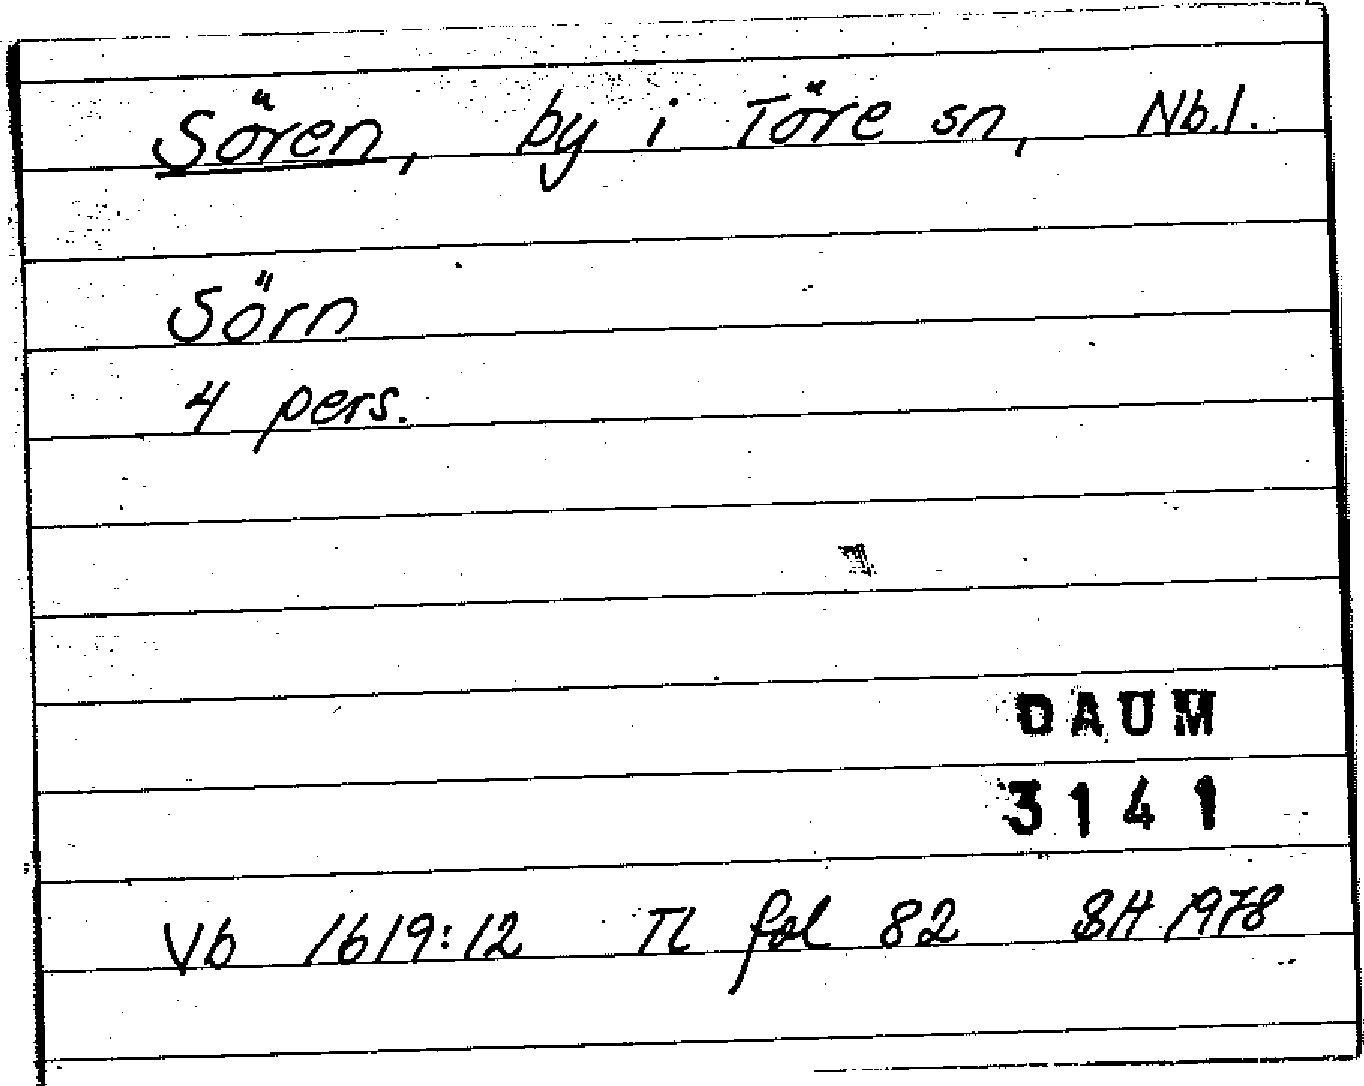 Sören, by i Töre sn, Nb.l.
Sörn
4 pers.
DAUM
3141
Vb 1619:12 TL fol 82 SH 1978